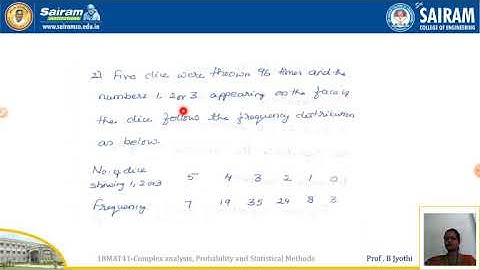 Sairam
INSTITUTIONS
www.sairamce.edu.in
SAIRAM
COLLEGE OF ENGINEERING
2) Five dice were thrown 96 times and the
numbers 1, 2 or 3 appearing on the face of
the dice follows the frequency distribution
as below.
No. of dice showing 1, 2 or 3 5 4 3 2 1 0
Frequency 7 19 35 24 8 3
18MAT41-Complex analysis, Probability and Statistical Methods
Prof . B Jyothi